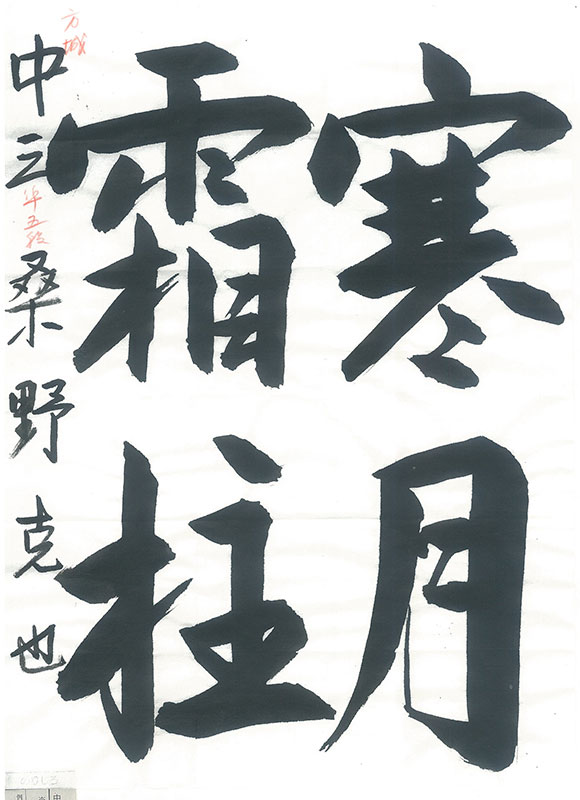 寒月
霜柱
方城
中三 準五段 桑野克也